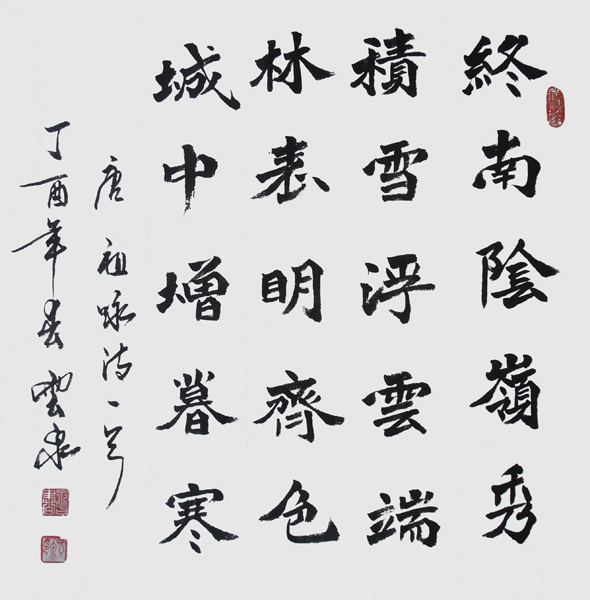 終南陰嶺秀
積雪浮雲端
林表明齊色
城中增暮寒
唐祖咏诗一首
丁酉年春雲